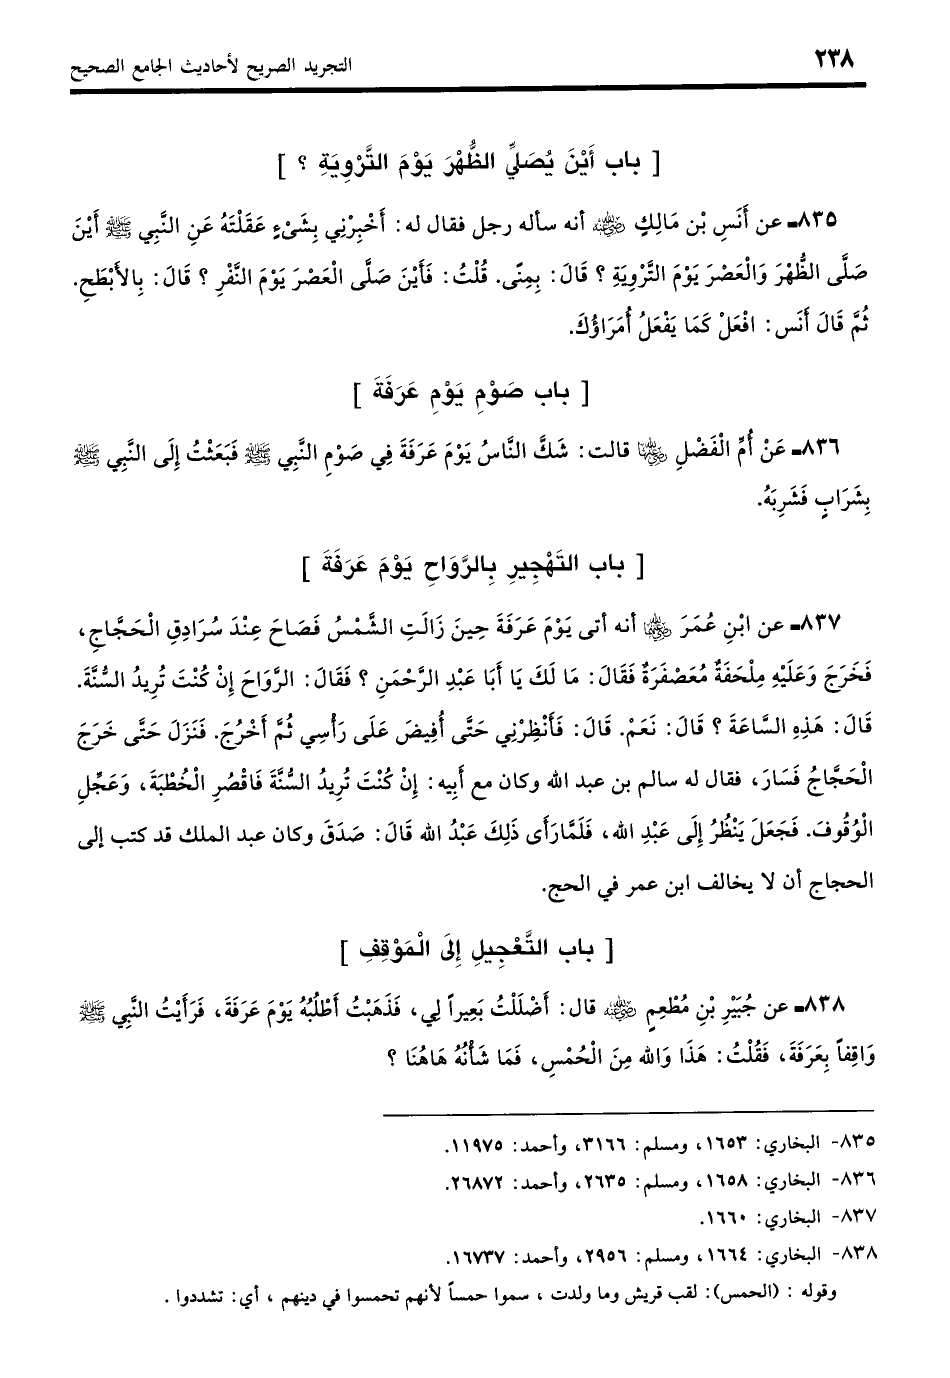 ٢٣٨
التجريد الصريح لأحاديث الجامع الصحيح
[ باب أَيْنَ يُصَلِّي الظُّهْرَ يَوْمَ التَّرْوِيَةِ ؟ ]
٨٣٥ـ عن أَنَسِ بْن مَالِكٍ رضي الله عنه أنه سأله رجل فقال له: أَخْبِرْنِي بِشَىْءٍ عَقَلْتَهُ عَنِ النَّبِي ﷺ أَيْنَ
صَلَّى الظُّهْرَ وَالْعَصْرَ يَوْمَ التَّرْوِيَةِ ؟ قَالَ: بِمِنًى. قُلْتُ: فَأَيْنَ صَلَّى الْعَصْرَ يَوْمَ النَّفْرِ ؟ قَالَ: بِالأَبْطَحِ.
ثُمَّ قَالَ أَنَس: افْعَلْ كَمَا يَفْعَلُ أُمَرَاؤُكَ.
[ باب صَوْمِ يَوْمِ عَرَفَةَ ]
٨٣٦ـ عَنْ أُمِّ الْفَضْلِ رضي الله عنها قالت: شَكَّ النَّاسُ يَوْمَ عَرَفَةَ فِي صَوْمِ النَّبِي ﷺ فَبَعَثْتُ إِلَى النَّبِي ﷺ
بِشَرَابٍ فَشَرِبَهُ.
[ باب التَهْجِيرِ بِالرَّوَاحِ يَوْمَ عَرَفَةَ ]
٨٣٧ـ عن ابْنِ عُمَرَ رضي الله عنهما أنه أتى يَوْمَ عَرَفَةَ حِينَ زَالَتِ الشَّمْسُ فَصَاحَ عِنْدَ سُرَادِقِ الْحَجَّاجِ،
فَخَرَجَ وَعَلَيْهِ مِلْحَفَةٌ مُعَصْفَرَةٌ فَقَالَ: مَا لَكَ يَا أَبَا عَبْدِ الرَّحْمَنِ ؟ فَقَالَ: الرَّوَاحَ إِنْ كُنْتَ تُرِيدُ السُّنَّةَ.
قَالَ: هَذِهِ السَّاعَةَ ؟ قَالَ: نَعَمْ. قَالَ: فَأَنْظِرْنِي حَتَّى أُفِيضَ عَلَى رَأْسِي ثُمَّ أَخْرُجَ. فَنَزَلَ حَتَّى خَرَجَ
الْحَجَّاجُ فَسَارَ، فقال له سالم بن عبد الله وكان مع أَبِيه: إِنْ كُنْتَ تُرِيدُ السُّنَّةَ فَاقْصُرِ الْخُطْبَةَ، وَعَجِّلِ
الْوُقُوفَ. فَجَعَلَ يَنْظُرُ إِلَى عَبْدِ الله، فَلَمَّارَأَى ذَلِكَ عَبْدُ الله قَالَ: صَدَقَ وكان عبد الملك قد كتب إلى
الحجاج أن لا يخالف ابن عمر في الحج.
[ باب التَّعْجِيلِ إِلَى الْمَوْقِفِ ]
٨٣٨ـ عن جُبَيْرِ بْنِ مُطْعِمٍ رضي الله عنه قال: أَضْلَلْتُ بَعِيراً لِي، فَذَهَبْتُ أَطْلُبُهُ يَوْمَ عَرَفَةَ، فَرَأَيْتُ النَّبِي ﷺ
وَاقِفاً بِعَرَفَةَ، فَقُلْتُ: هَذَا وَالله مِنَ الْحُمْسِ، فَمَا شَأْنُهُ هَاهُنَا ؟
٨٣٥- البخاري: ١٦٥٣، ومسلم: ٣١٦٦، وأحمد: ١١٩٧٥.
٨٣٦- البخاري: ١٦٥٨، ومسلم: ٢٦٣٥، وأحمد: ٢٦٨٧٢.
٨٣٧- البخاري: ١٦٦٠.
٨٣٨- البخاري: ١٦٦٤، ومسلم: ٢٩٥٦، وأحمد: ١٦٧٣٧.
وقوله : (الحمس): لقب قريش وما ولدت ، سموا حمساً لأنهم تحمسوا في دينهم ، أي: تشددوا .